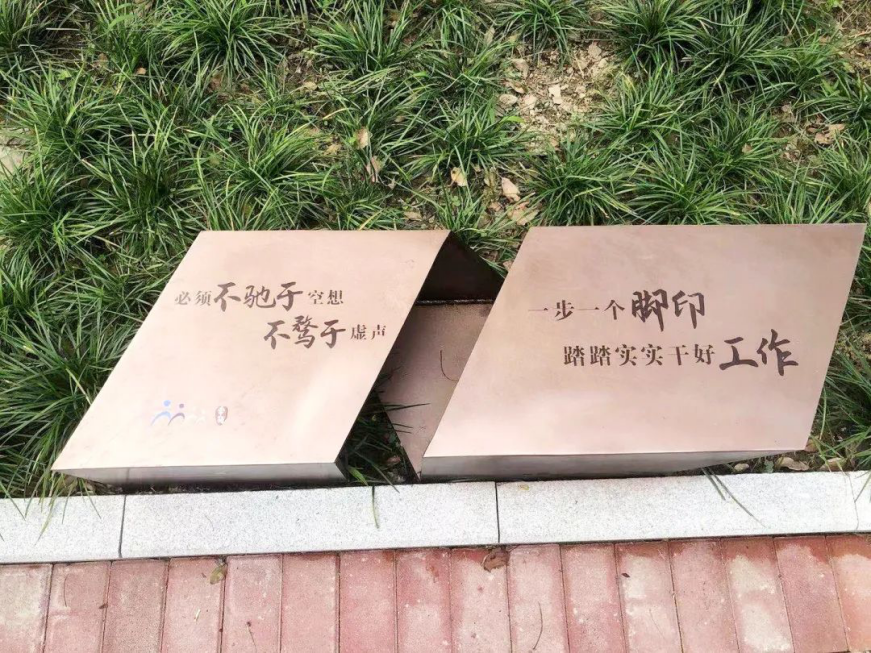 必须不驰于空想
不骛于虚声
一步一个脚印
踏踏实实干好工作